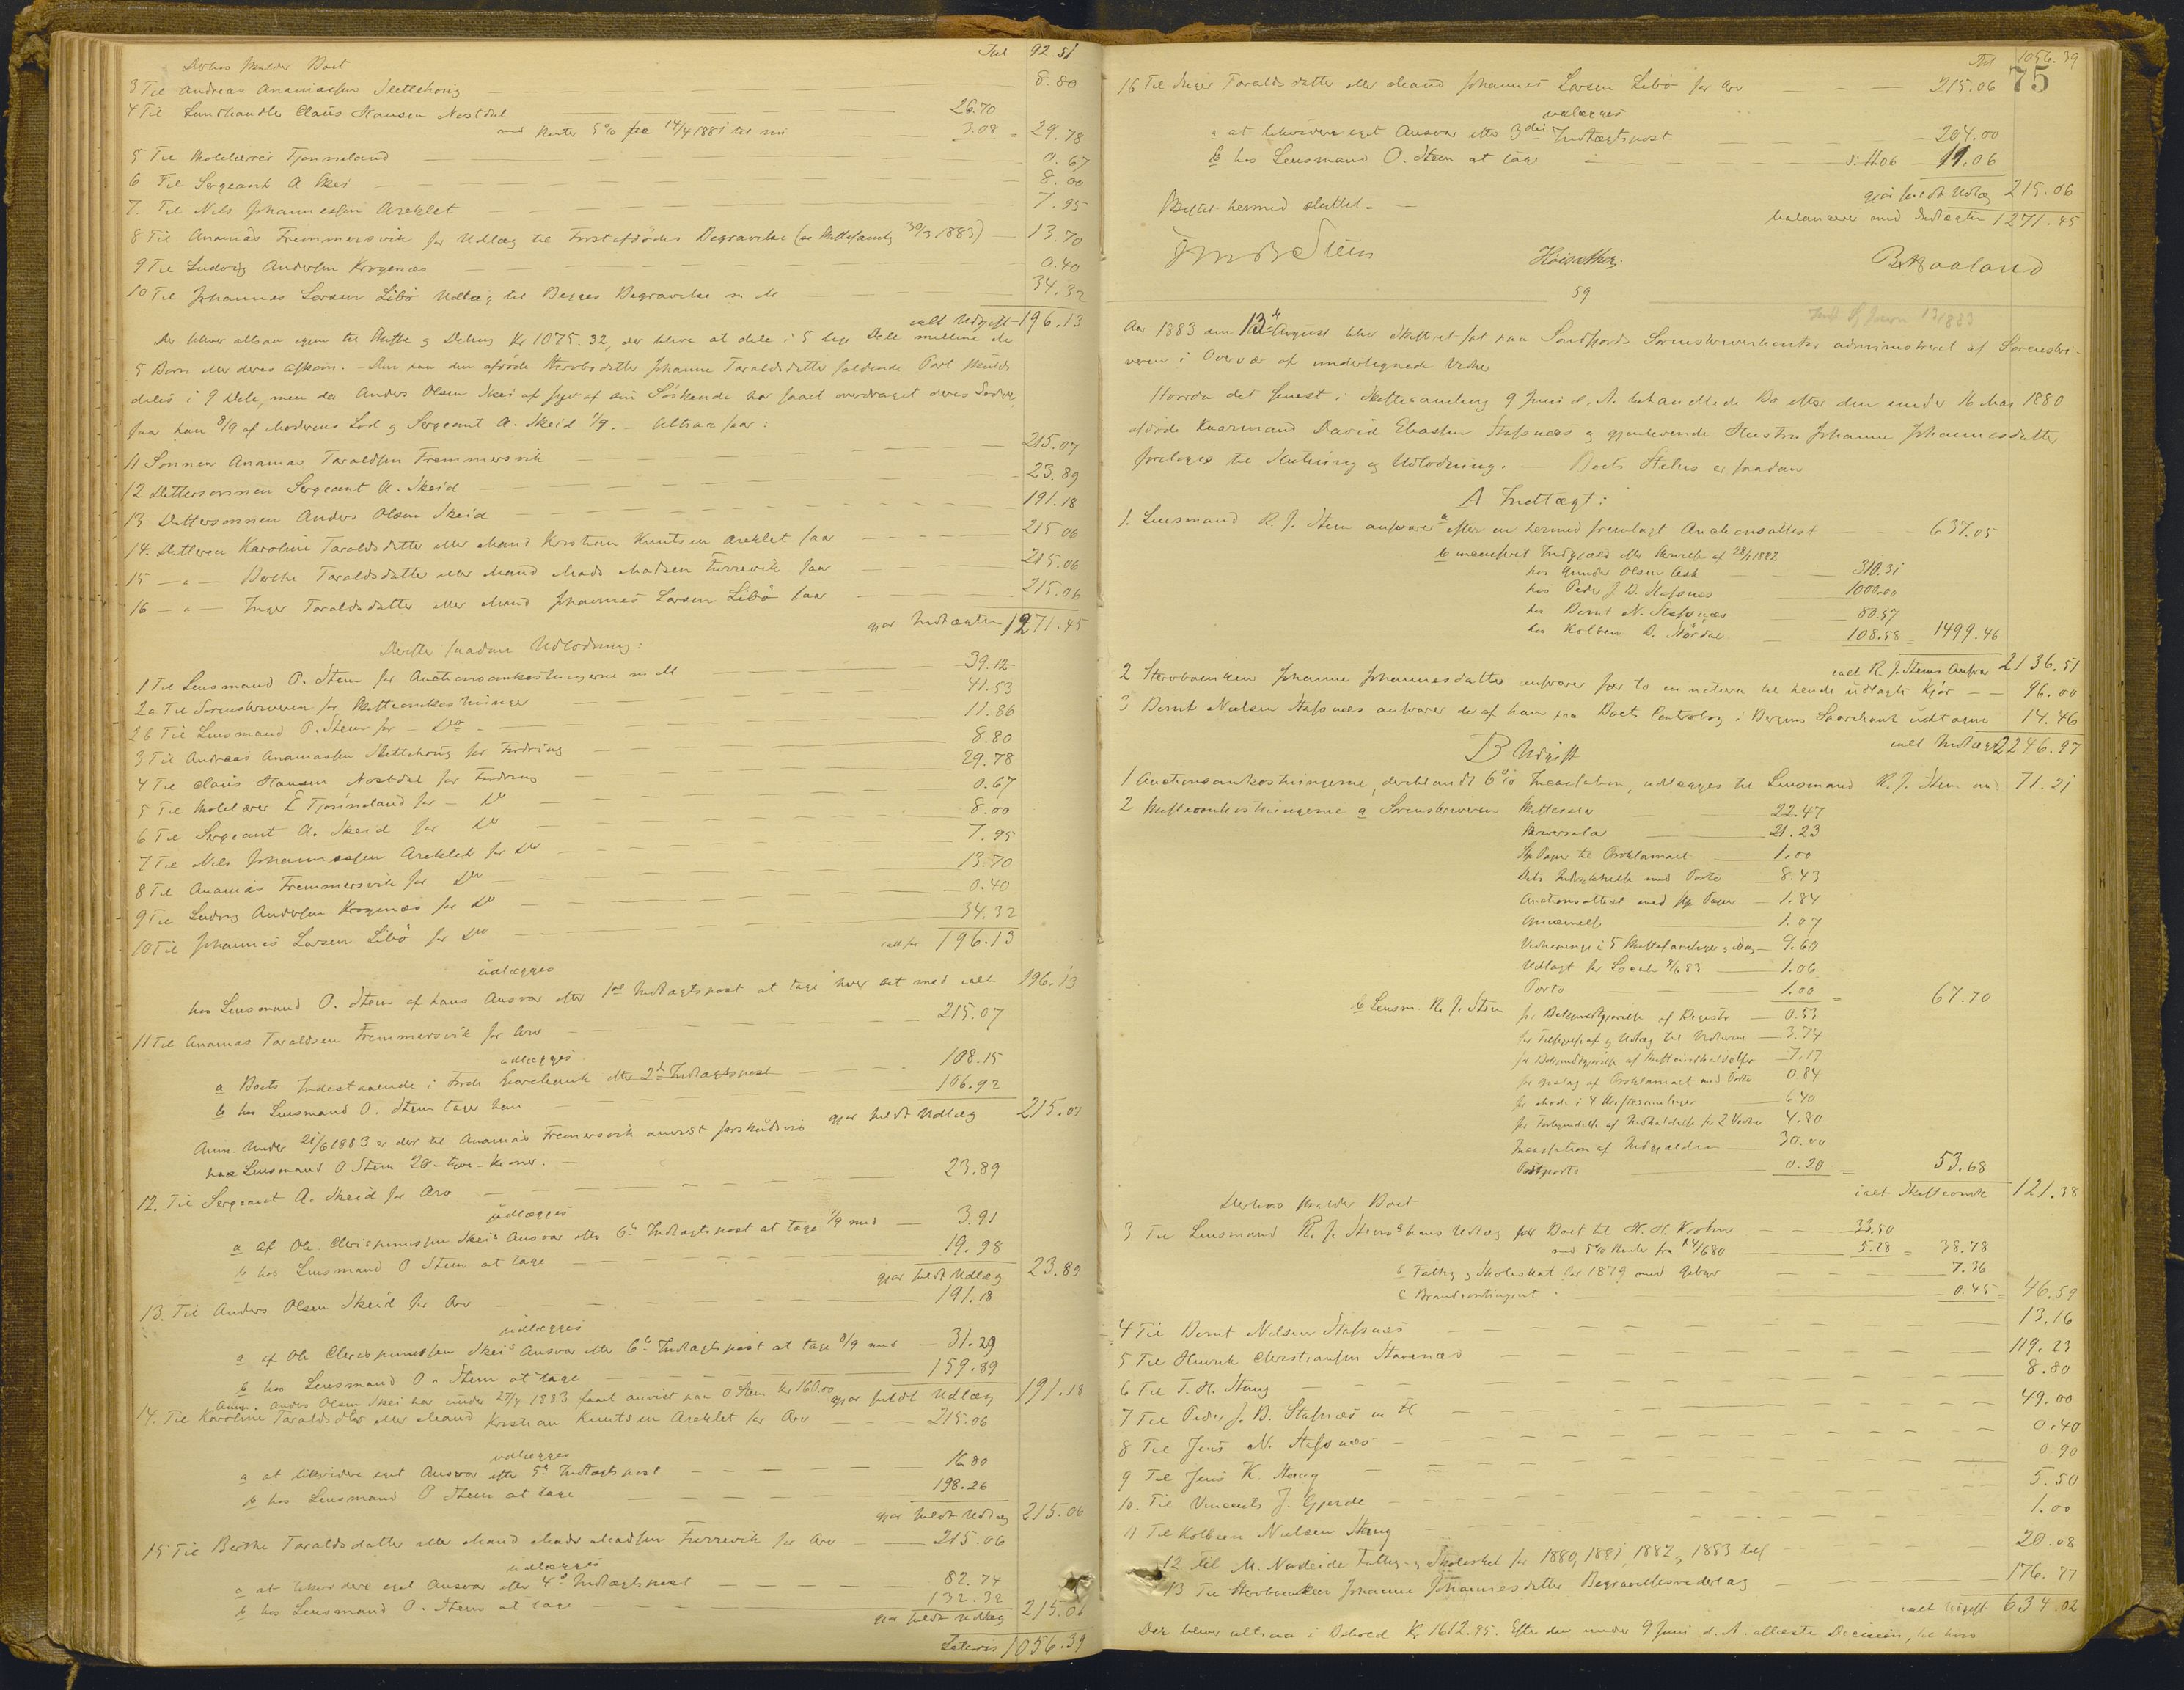 Trl 92.51
Derhos melder Boet
3 Til Andreas Ananiassen Slettehoug — 8.80
4 Til Landhandler Claus Hansen Nostdal 26.70
med Renter 5% fra 14/4 1881 til nu 3.08 = 29.78
5 Til Molelærer Tjønneland — 0.67
6 Til Sergeant A Skei — 8.00
7. Til Nils Johannessen Areklet — 7.95
8 Til Ananias Fremmersvik for Udlæg til Førstafdødes Begravelse (se Skiftesamling 30/3 1883) — 13.70
9 Til Ludvig Andersen Krogenæs — 0.40
10 Til Johannes Larsen Libø Udlæg til Begges Begravelse m M — 34.32
ialt Udgift 196.13
Der bliver altsaa igjen til Skifte og Deling Kr 1075.32, der blive at dele i 5 lige Dele mellem de
5 Børn eller deres Afkom. - Den paa den afdøde Stervbodatter Johanne Taraldsdatter faldende Part skulde
deles i 9 Dele, men da Anders Olsen Skei af syv af sine Søskende har faaet overdraget deres Lodder,
faar han 8/9 af Moderens Lod og Sergeant A. Skeid 1/9. - Altsaa faar:
11 Sønnen Ananias Taraldsen Fremmersvik — 215.07
12 Dattersønnen Sergeant A. Skeid — 23.89
13 Dattersønnen Anders Olsen Skeid — 191.18
14. Datteren Karoline Taraldsdatter eller Mand Kristian Knutsen Areklet faar — 215.06
15 — " — Berthe Taraldsdatter eller Mand Mads Madsen Furrevik faar — 215.06
16 — " — Inger Taraldsdatter eller Mand Johannes Larsen Libø faar — 215.06
gjør Indtægten 1271.45
Derefter saadan Udlodning:
1 Til Lensmand O. Steen for Auctionsomkostningerne m M — 39.12
2a Til Sorenskriveren for Skifteomkostninger — 41.53
2b Til Lensmand O. Steen for - Do - — 11.86
3 Til Andreas Ananiassen Slettehoug for Fordring — 8.80
4 Til Claus Hansen Nostdal for Fordring — 29.78
5 Til Molelærer E Tjønneland for - Do — 0.67
6 Til Sergeant A. Skeid for Do — 8.00
7 Til Nils Johannessen Areklet for Do — 7.95
8 Til Ananias Fremmersvik for Do — 13.70
9 Til Ludvig Andersen Krogenæs for Do — 0.40
10 Til Johannes Larsen Libø for Do — 34.32
ialt for 196.13
udlægges
hos Lensmand O. Steen af hans Ansvar efter 1ste Indtægtspost at tage hver sit med ialt 196.13
11 Til Ananias Taraldsen Fremmersvik for Arv — 215.07
udlægges
a Boets Indestaaende i Førde Sparebank efter 2den Indtægtspost — 108.15
b hos Lensmand O. Steen tager han — 106.92
gjør fuldt Udlæg 215.07
Anm. Under 21/6 1883 er der til Ananias Fremersvik anvist forskudsvis
hos Lensmand O Steen 20 - tyve - Kroner. -
12. Til Sergeant A. Skeid for Arv — 23.89
udlægges
a Af Ole Chrispinussen Skeis Ansvar efter 6te Indtægtspost at tage 1/9 med — 3.91
b hos Lensmand O Steen at tage — 19.98
gjør fuldt Udlæg 23.89
13. Til Anders Olsen Skeid for Arv — 191.18
udlægges
a af Ole Chrispinussen Skeis Ansvar efter 6te Indtægtspost at tage 8/9 med — 31.29
b hos Lensmand O. Steen at tage — 159.89
Anm. Anders Olsen Skei har under 27/4 1883 faaet anvist paa O Steen Kr 160.00 gjør fuldt Udlæg 191.18
14. Til Karoline Taraldsdtr eller Mand Kristian Knutsen Areklet for Arv — 215.06
udlægges
a at likvidere eget Ansvar efter 5te Indtægtspost — 16.80
b hos Lensmand O Steen at tage — 198.26
gjør fuldt Udlæg 215.06
15 Til Berthe Taraldsdatter eller Mand Mads Madsen Furrevik for Arv — 215.06
udlægges
a at likvidere eget Ansvar efter 4de Indtægtspost — 82.74
b hos Lensmand O. Steen at tage — 132.32
gjør fuldt Udlæg 215.06
Lateris 1056.39
Trl 1056.39
75
16 Til Inger Taraldsdatter eller Mand Johannes Larsen Libø for Arv — 215.06
udlægges
a at likvidere eget Ansvar efter 3die Indtægtspost — 204.00
b hos Lensmand O. Steen at tage — 11.06
gjør fuldt Udlæg 215.06
balancerer med Indtægten 1271.45
Boet er hermed sluttet. -
59
Aar 1883 den 13de August blev Skifteret sat paa Søndfjords Sorenskriverkontor administreret af Sorenskri-
veren i Overvær af undertegnede Vidner
Hvorda det senest i Skiftesamling 9 Juni d. A. behandlede Bo efter den under 16 Mai 1880
afdøde Kaarmand David Eliassen Stafsnæs og gjenlevende Hustru Johanne Johannesdatter
foretoges til Slutning og Udlodning. - Boets Status er saadan
A Indtægt:
1. Lensmand R. J. Steen ansvarer a efter en hermed fremlagt Auctionsattest — 637.05
b inccasseret Indgjæld efter Anviselse af 28/1 1882
hos Gunder Olsen Ask — 310.31
hos Peder J. D. Stafsnæs — 1000.00
hos Bernt N. Stafsnæs — 80.57
hos Kolben D. Nordal — 108.58 = 1499.46
ialt R. J. Steens Ansvar 2136.51
2 Stervboenken Johanne Johannesdatter ansvarer for to in natura til hende udlagte Kjør — 96.00
3 Bernt Nielsen Stafsnæs ansvarer de af ham paa Boets Contrabog i Bergens Sparebank udtagne 14.46
ialt Indtægt 2246.97
B Udgift
1 Auctionsomkostningerne, deriblandt 6% Incassation, udlægges til Lensmand R. J. Steen med 71.21
2 Skifteomkostningerne a Sorenskriveren Skiftesalær — 22.47
Skriversalær — 21.23
Stp Papir til Proklamaet — 1.00
Dets Indrykkelse med Porto — 8.43
Auctionsattest med stp Papir — 1.84
1.07
Vidnepenge i 5 Skiftesamlinger i Dag — 9.60
Udlagt for Locale 9/6 83 — 1.06
Porto — 1.00 = 67.70
b Lensm. R. J. Steen for Bekjendtgjørelse af Registr — 0.53
3.74
for Bekjendtgjørelse af Skifteindkaldelser — 7.17
for Opslag af Proklamaet med Porto 0.84
for Møde i 4 Skiftesamlinger — 6.40
for Forkyndelse af Indkaldelse for 2 Vidner 4.80
Incassation af Indgjælden — 30.00
Postporto — 0.20 = 53.68
ialt Skifteomk 121.38
Derhos melder Boet
3 Til Lensmand R. J. Steen a hans Udlæg for Boet til H. H. Krohn — 33.50
med 5% Rente fra 14/6 80 — 5.28 = 38.78
b Fattig og Skoleskat for 1879 med Gebyr — 7.36
c Brandcontingent — 0.45 = 46.59
4 Til Bernt Nielsen Stafsnæs — 13.16
5 Til Henrik Christiansen Stavenæs — 119.23
6 Til T. H. Stang — 8.80
7 Til Peder J. D. Stafsnæs m fl — 49.00
8 Til Jens N. Stafsnæs — 0.40
9 Til Jens K. Stang — 0.90
10. Til Vincents J. Gjerde — 5.50
11 Til Kolbein Nielsen Stang — 1.00
12 Til M. Nordeide Fattig- og Skoleskat for 1880, 1881, 1882 og 1883 — 20.08
13 Til Stervboenken Johanne Johannesdatter Begravelsesvederlag — 176.77
ialt Udgift 634.02
Der bliver altsaa i Behold Kr 1612.95. Efter den under 9 Juni d. A. afsagte Decision,